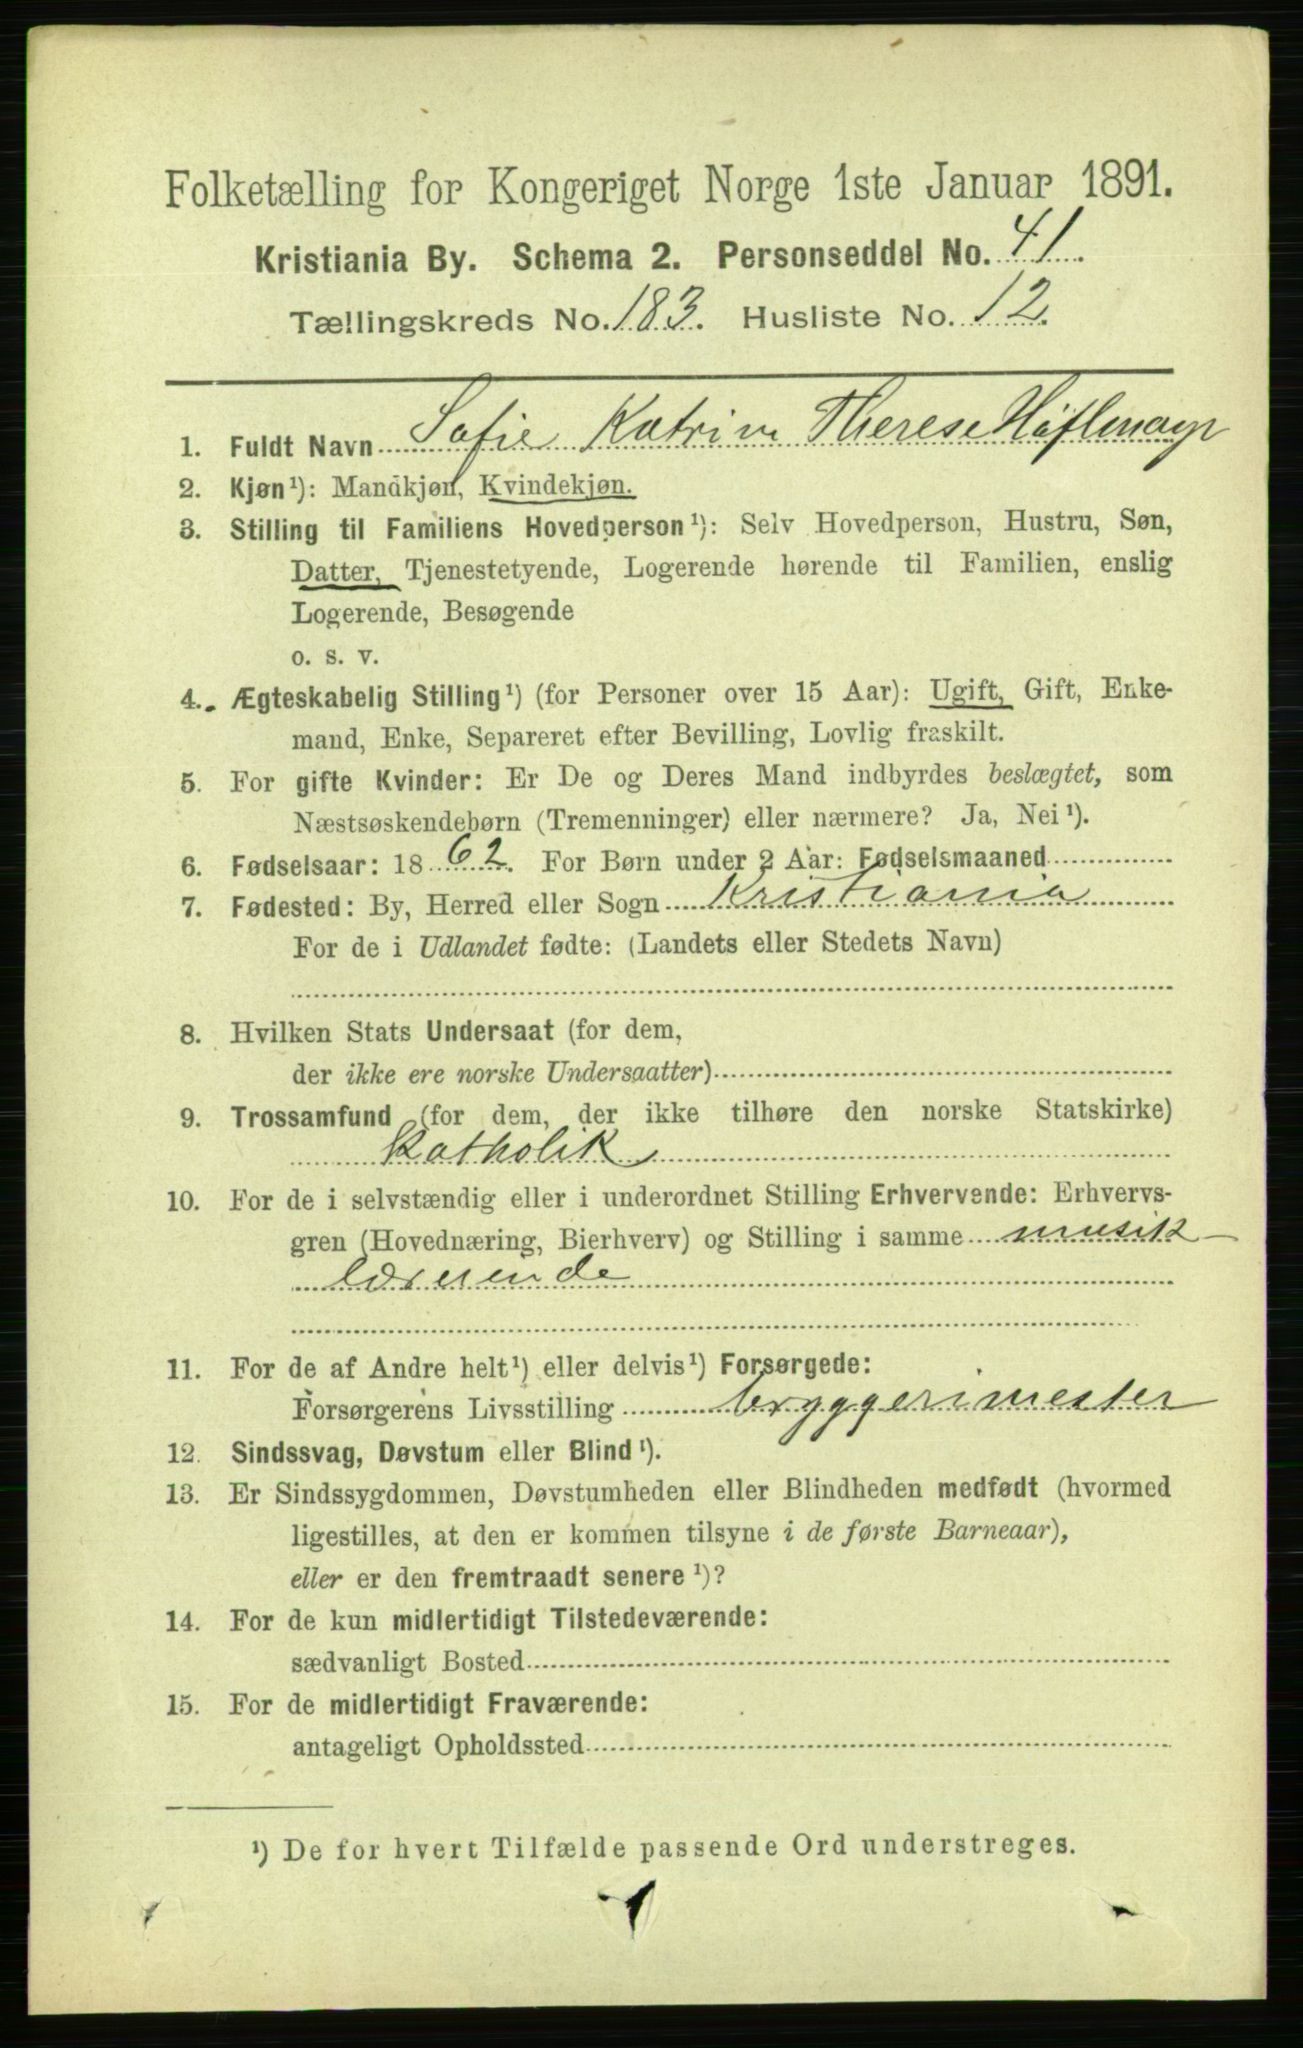 Folketælling for Kongeriget Norge 1ste Januar 1891.
Kristiania By. Schema 2. Personseddel No. 41.
Tællingskreds No. 183. Husliste No. 12.
1. Fuldt Navn Sofie Katrine Therese Høflmayr
2. Kjøn¹): Mandkjøn, Kvindekjøn.
3. Stilling til Familiens Hovedperson¹): Selv Hovedperson, Hustru, Søn,
Datter, Tjenestetyende, Logerende hørende til Familien, enslig
Logerende, Besøgende
o. s. v.
4. Ægteskabelig Stilling¹) (for Personer over 15 Aar): Ugift, Gift, Enke-
mand, Enke, Separeret efter Bevilling, Lovlig fraskilt.
5. For gifte Kvinder: Er De og Deres Mand indbyrdes beslægtet, som
Næstsøskendebørn (Tremenninger) eller nærmere? Ja, Nei¹).
6. Fødselsaar: 1862. For Børn under 2 Aar: Fødselsmaaned
7. Fødested: By, Herred eller Sogn Kristiania
For de i Udlandet fødte: (Landets eller Stedets Navn)
8. Hvilken Stats Undersaat (for dem,
der ikke ere norske Undersaatter)
9. Trossamfund (for dem, der ikke tilhøre den norske Statskirke)
Katholik
10. For de i selvstændig eller i underordnet Stilling Erhvervende: Erhvervs-
gren (Hovednæring, Bierhverv) og Stilling i samme musik-
lærerinde
11. For de af Andre helt¹) eller delvis¹) Forsørgede:
Forsørgerens Livsstilling bryggerimester
12. Sindssvag, Døvstum eller Blind¹).
13. Er Sindssygdommen, Døvstumheden eller Blindheden medfødt (hvormed
ligestilles, at den er kommen tilsyne i de første Barneaar),
eller er den fremtraadt senere¹)?
14. For de kun midlertidigt Tilstedeværende:
sædvanligt Bosted
15. For de midlertidigt Fraværende:
antageligt Opholdssted
¹) De for hvert Tilfælde passende Ord understreges.